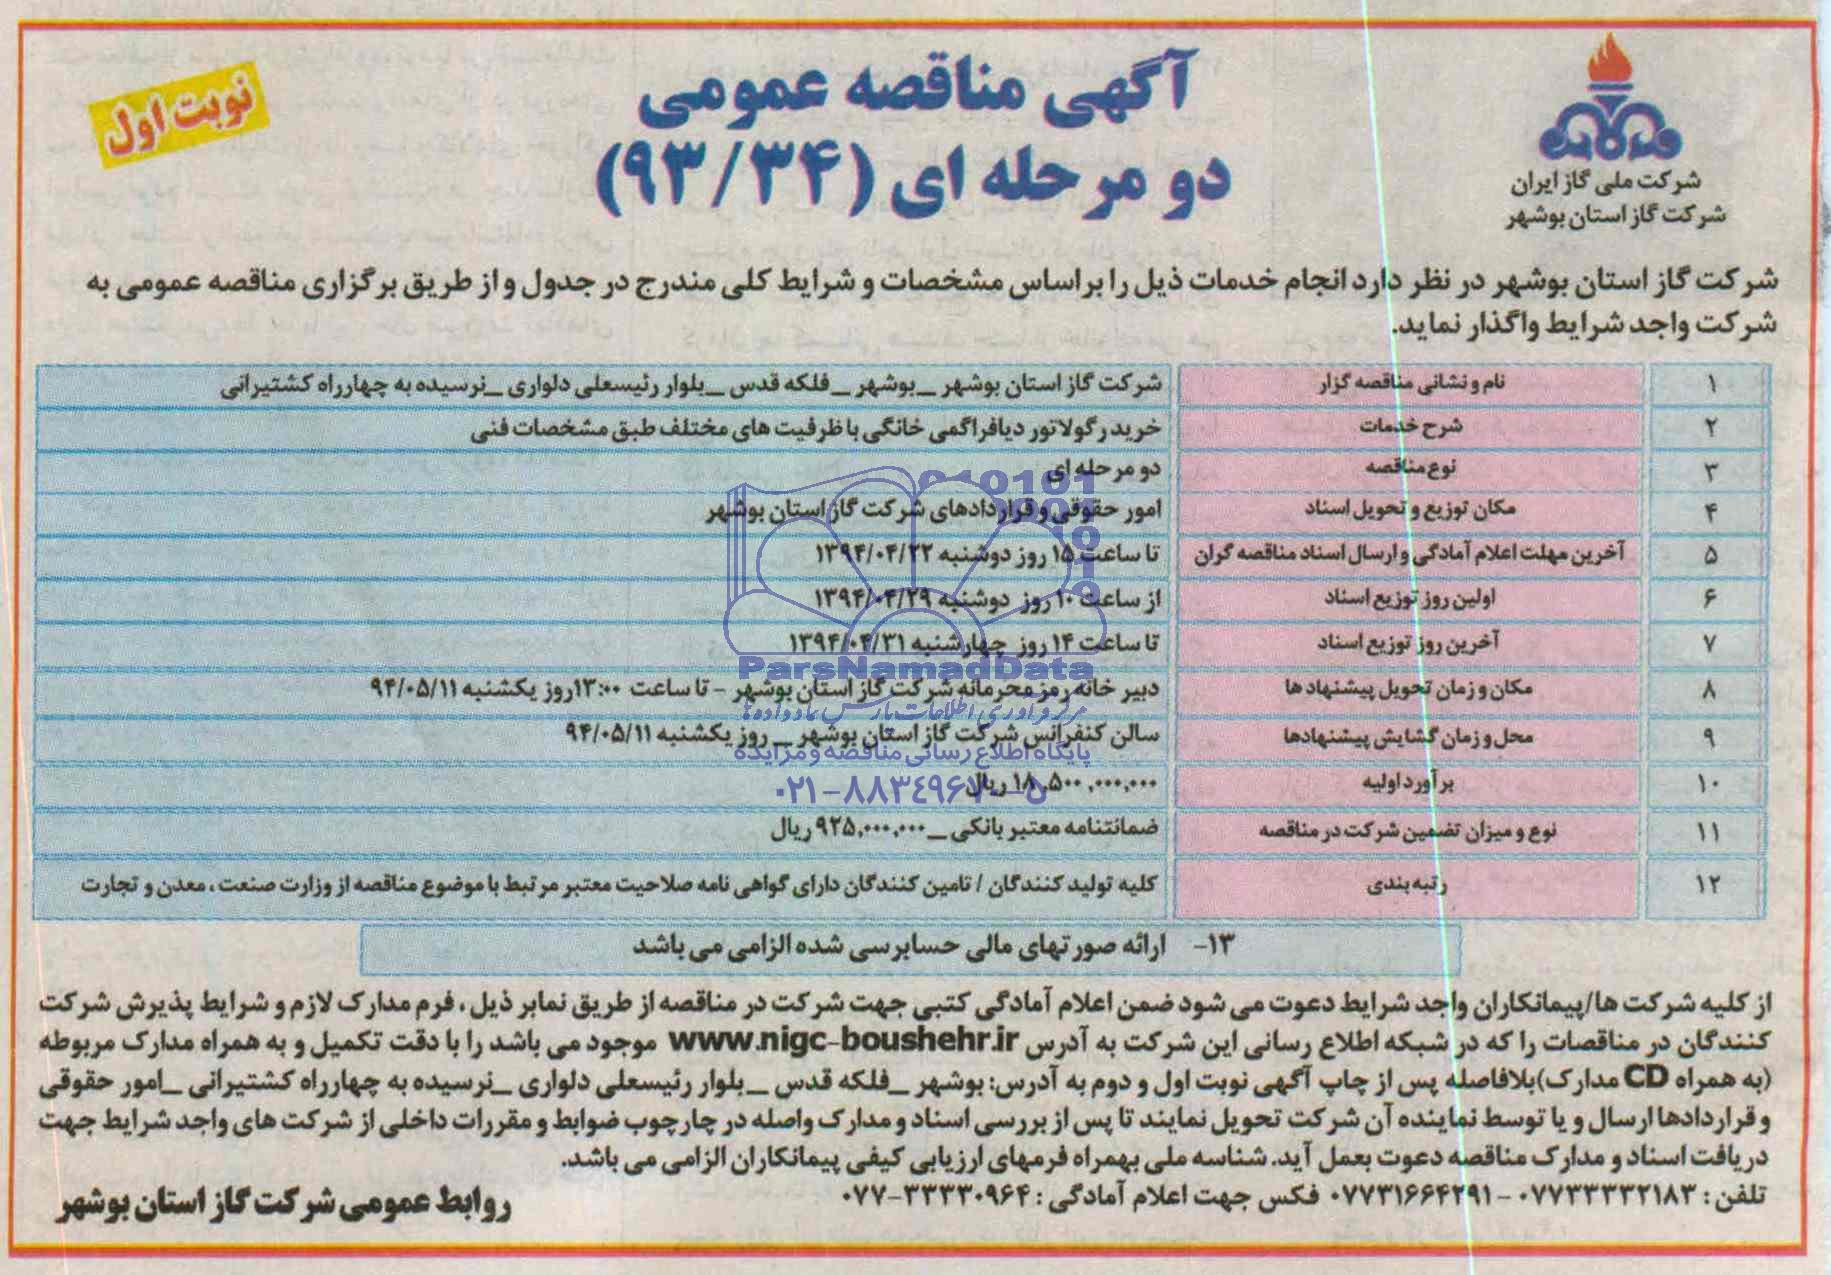 آگهی مناقصه عمومی
دو مرحله ای (۹۳/۳۴)
نوبت اول
شرکت ملی گاز ایران
شرکت گاز استان بوشهر
شرکت گاز استان بوشهر در نظر دارد انجام خدمات ذیل را براساس مشخصات و شرایط کلی مندرج در جدول و از طریق برگزاری مناقصه عمومی به
شرکت واجد شرایط واگذار نماید.
۱ نام و نشانی مناقصه گزار شرکت گاز استان بوشهر _ بوشهر _ فلکه قدس _ بلوار رئیسعلی دلواری _ نرسیده به چهارراه کشتیرانی
۲ شرح خدمات خرید رگولاتور دیافراگمی خانگی با ظرفیت های مختلف طبق مشخصات فنی
۳ نوع مناقصه دو مرحله ای
۴ مکان توزیع و تحویل اسناد امور حقوقی و قراردادهای شرکت گاز استان بوشهر
۵ آخرین مهلت اعلام آمادگی و ارسال اسناد مناقصه گران تا ساعت ۱۵ روز دوشنبه ۱۳۹۴/۰۴/۲۲
۶ اولین روز توزیع اسناد از ساعت ۱۰ روز دوشنبه ۱۳۹۴/۰۴/۲۹
۷ آخرین روز توزیع اسناد تا ساعت ۱۴ روز چهارشنبه ۱۳۹۴/۰۴/۳۱
۸ مکان و زمان تحویل پیشنهاد ها دبیر خانه رمز محرمانه شرکت گاز استان بوشهر - تا ساعت ۱۳:۰۰ روز یکشنبه ۹۴/۰۵/۱۱
۹ محل و زمان گشایش پیشنهادها سالن کنفرانس شرکت گاز استان بوشهر _ روز یکشنبه ۹۴/۰۵/۱۱
۱۰ برآورد اولیه ۱۸,۵۰۰,۰۰۰,۰۰۰ ریال
۱۱ نوع و میزان تضمین شرکت در مناقصه ضمانتنامه معتبر بانکی _ ۹۲۵,۰۰۰,۰۰۰ ریال
۱۲ رتبه بندی کلیه تولید کنندگان / تامین کنندگان دارای گواهی نامه صلاحیت معتبر مرتبط با موضوع مناقصه از وزارت صنعت، معدن و تجارت
۱۳- ارائه صورتهای مالی حسابرسی شده الزامی می باشد
از کلیه شرکت ها/پیمانکاران واجد شرایط دعوت می شود ضمن اعلام آمادگی کتبی جهت شرکت در مناقصه از طریق نمابر ذیل، فرم مدارک لازم و شرایط پذیرش شرکت
کنندگان در مناقصات را که در شبکه اطلاع رسانی این شرکت به آدرس www.nigc-boushehr.ir موجود می باشد را با دقت تکمیل و به همراه مدارک مربوطه
(به همراه CD مدارک) بلافاصله پس از چاپ آگهی نوبت اول و دوم به آدرس: بوشهر _ فلکه قدس _ بلوار رئیسعلی دلواری _ نرسیده به چهارراه کشتیرانی _ امور حقوقی
و قراردادها ارسال و یا توسط نماینده آن شرکت تحویل نمایند تا پس از بررسی اسناد و مدارک واصله در چارچوب ضوابط و مقررات داخلی از شرکت های واجد شرایط جهت
دریافت اسناد و مدارک مناقصه دعوت بعمل آید. شناسه ملی بهمراه فرمهای ارزیابی کیفی پیمانکاران الزامی می باشد.
تلفن: ۰۷۷۳۳۳۳۲۱۸۳ - ۰۷۷۳۱۶۶۴۲۹۱ فکس جهت اعلام آمادگی: ۳۳۳۳۰۹۶۴-۰۷۷
روابط عمومی شرکت گاز استان بوشهر
ParsNamadData
مرکز فرآوری اطلاعات پارس نماد داده ها
پایگاه اطلاع رسانی مناقصه و مزایده
۰۲۱-۸۸۳۴۹۶۷۰-۵